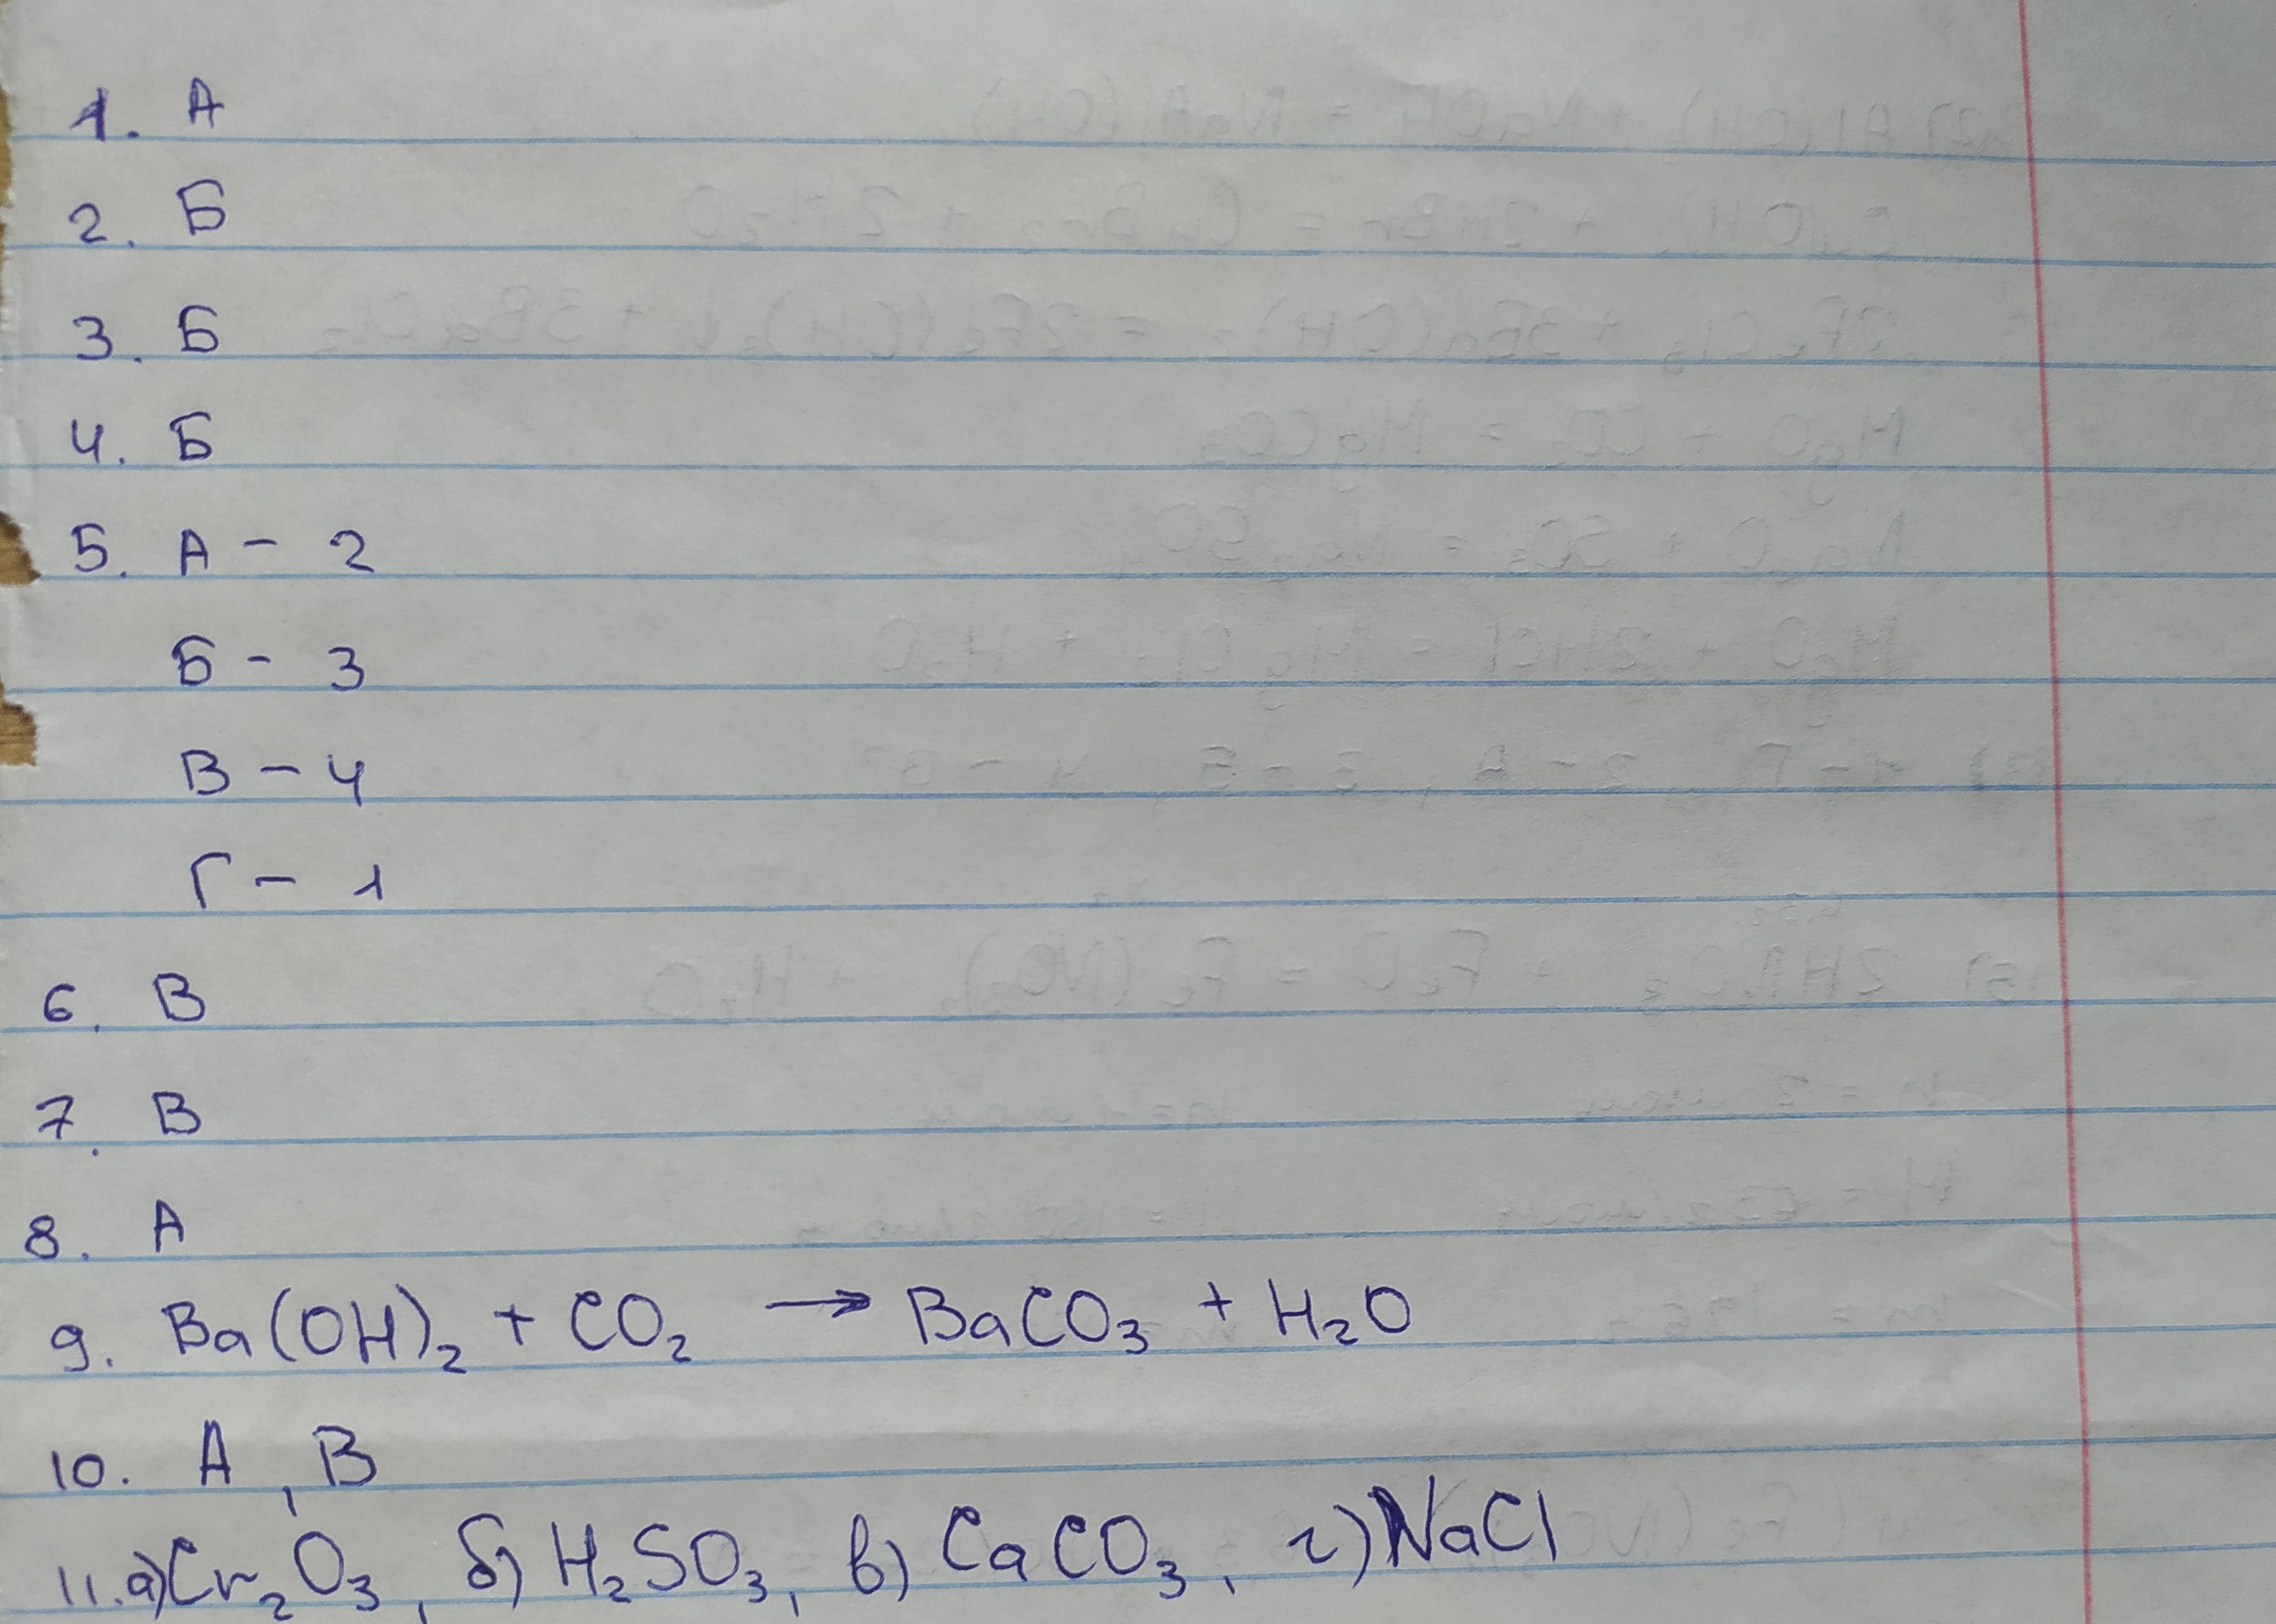 1. А
2. Б
3. Б
4. Б
5. А - 2
Б - 3
В - 4
Г - 1
6. В
7. В
8. А
9. Ba(OH)₂ + CO₂ → BaCO₃ + H₂O
10. А, В
11. а) Cr₂O₃, б) H₂SO₃, в) CaCO₃, г) NaCl